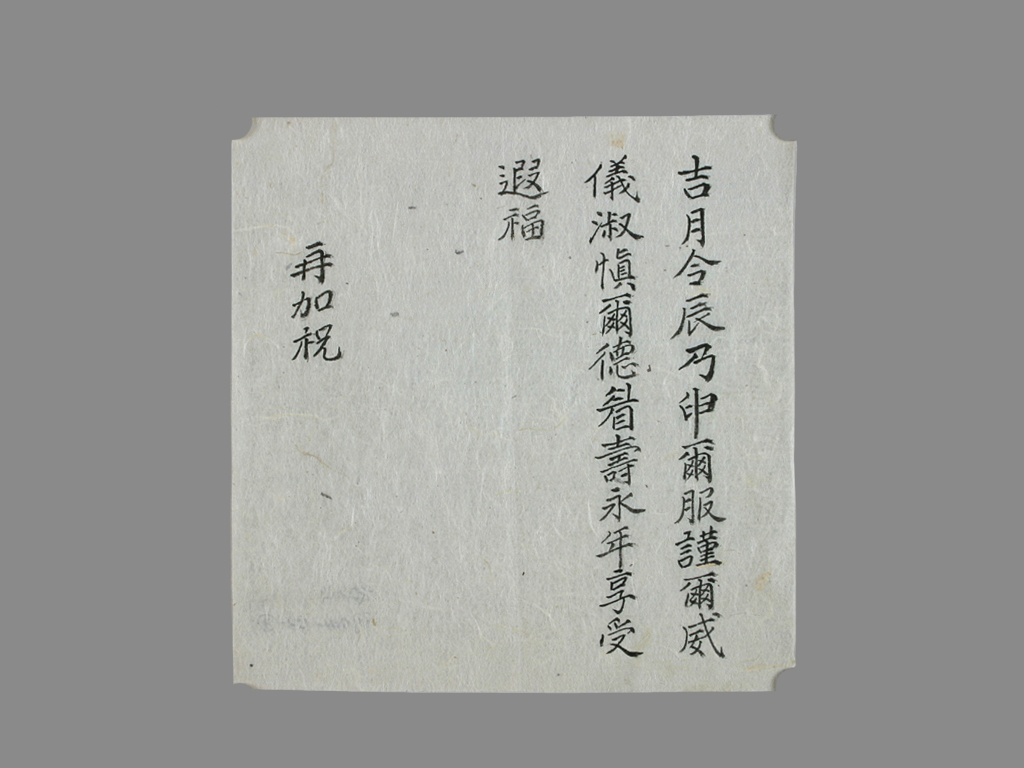 吉月令辰乃申爾服謹爾威
儀淑慎爾德眉壽永年享受
遐福
再加祝